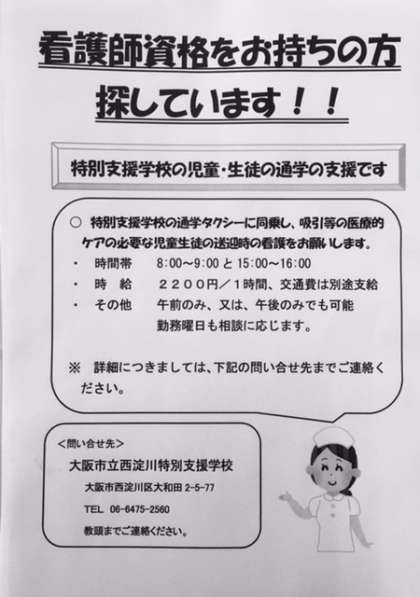 看護師資格をお持ちの方
探しています！！
特別支援学校の児童・生徒の通学の支援です
○ 特別支援学校の通学タクシーに同乗し、吸引等の医療的
ケアの必要な児童生徒の送迎時の看護をお願いします。
・ 時間帯 8:00～9:00 と 15:00～16:00
・ 時 給 ２２００円／１時間、交通費は別途支給
・ その他 午前のみ、又は、午後のみでも可能
勤務曜日も相談に応じます。
※ 詳細につきましては、下記の問い合せ先までご連絡く
ださい。
＜問い合せ先＞
大阪市立西淀川特別支援学校
大阪市西淀川区大和田 2-5-77
TEL 06-6475-2560
教頭までご連絡ください。